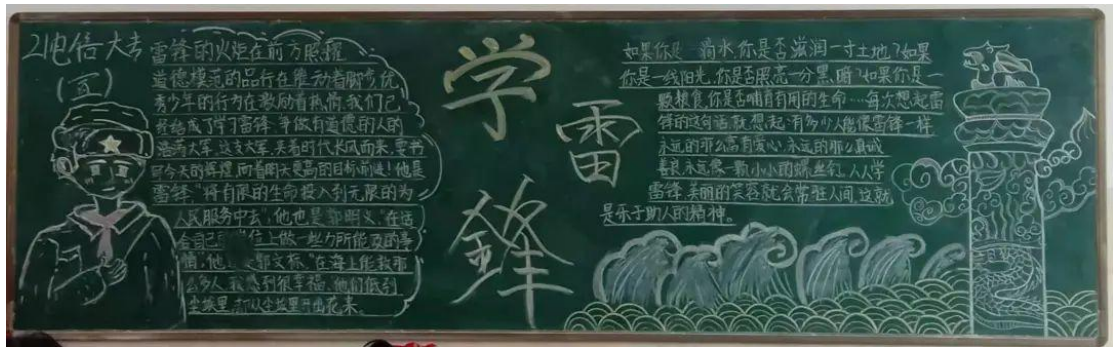 21电信大专
(五)
雷锋的火炬在前方照耀
道德模范的品行在催动着脚步,优
秀少年的行为在激励着热情,我们已
经结成了学习雷锋,争做有道德的人的
浩荡大军,这支大军,
时代长风而来,要书
写今天的辉煌,向着明天更高的目标前进!他是
雷锋,"将有限的生命投入到无限的为
人民服务中去,他也是郭明义,"在适
合自己
位上做一些力所能及的事
情,他
郭文标,"在海上能救那
么多人,我感到很幸福,他们低到
尘埃里,却从尘埃里开出花来。
学
雷
鋒
如果你是一滴水,你是否滋润一寸土地?如果
你是一线阳光,你是否照亮一分黑暗?如果你是一
颗粮食,你是否哺育有用的生命……每次想起雷
锋的这句话,就想起:有多少人能像雷锋一样
永远的那么富有爱心,永远的那么真诚
善良,永远像一颗小小的螺丝钉,人人学
雷锋,美丽的笑容就会常驻人间,这就
是乐于助人的精神。